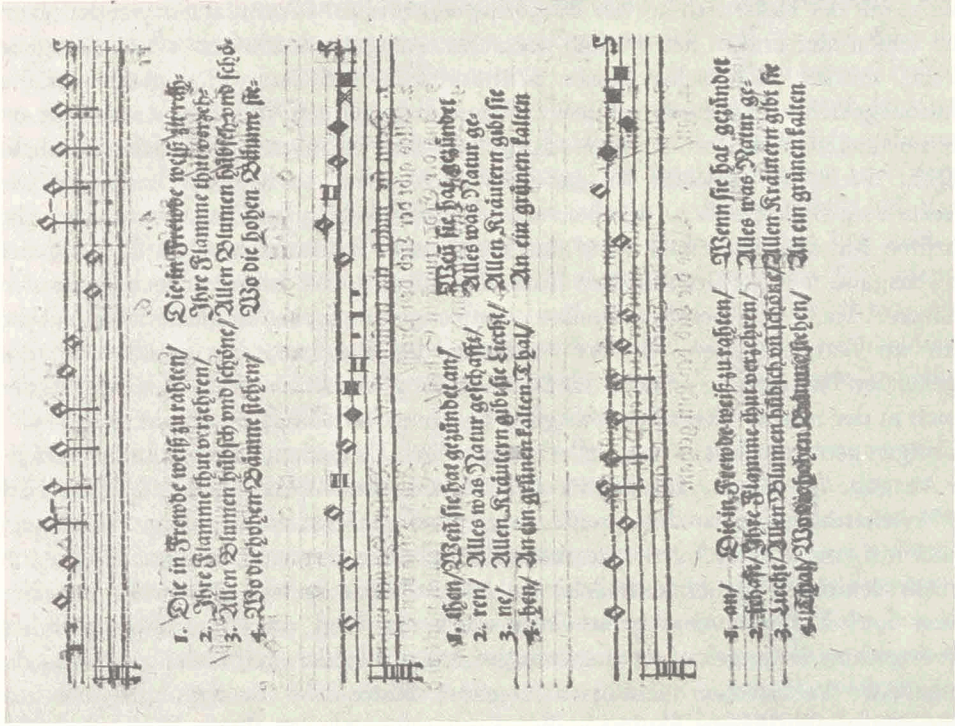 1. Die in Frewde weiß zu rahten/ Die in Frewde weiß zu rah-
2. Ihre Flamme thut vorzehren/ Ihre Flamme thut vorzeh-
3. Allen Blumen hübsch vnd schöne/ Allen Blumen hübsch vnd schö-
4. Wo die hohen Bäume stehen/ Wo die hohen Bäume ste-
1. hen/ Weil sie hat gezündet an/ hat gezündet
2. ren/ Alles was Natur geschafft/ Alles was Natur ge-
3. ne/ Allen Kräutern gibt sie Liecht/ Allen Kräutern gibt sie
4. hen/ An ein grünen kalten Thal/ An ein grünen kalten
1. an/ Die in Frewde weiß zu rahten/ Wenn sie hat gezündet
2. Ihre Flamme thut verzehren/ Alles was Natur ge-
3. Liecht/ Allen Blumen hübsch vnd schöne/ Allen Kräutern gibt sie
4. Thal/ Wo die hohen Bäume stehen/ An ein grünen kalten